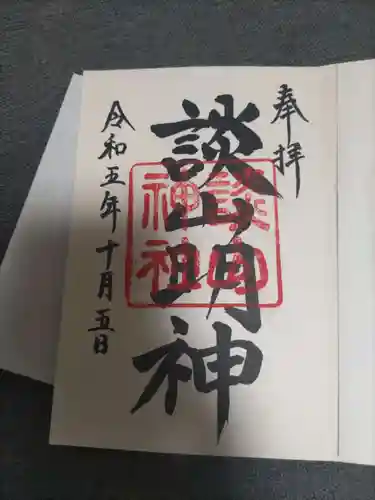 奉拝
談山明神
談山
神社
令和五年十月五日